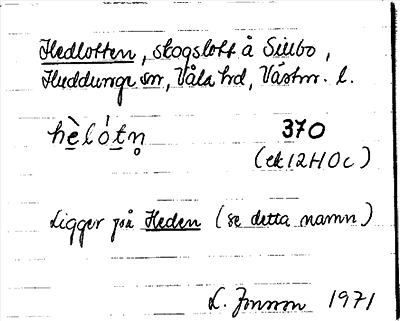 Hedlotten, skogslott å Siubo,
Huddunge sn, Våla hd, Västm. l.
hèlótn̥
370
(ek 12H0c)
Ligger på Heden (se detta namn)
L. Jonson 1971